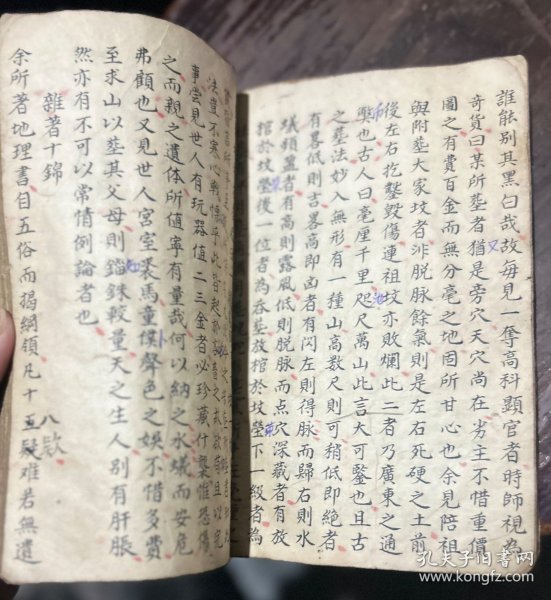 誰能別其黑白哉故每見一奪高科顯官者時師視為
奇貨曰某所塟者猶是旁穴天穴尚在劣主不惜重價
圖之有費百金而無分毫之地固所甘心也余見陪祖
與附塟大家坟者非脱脉餘氣則是左右死硬之土前
後左右挖鑿毀傷連祖坟亦敗爛此二者乃廣東之通
弊也古人曰毫厘千里咫尺萬山此言大可鑒也且古
之塟法妙入無形有一種山高数尺則可稍低即絶者
有畧低則吉畧高即凶者有閃左則得脉而歸右則水
蟻頻並者有高則露風低則脱脉而点穴深藏者有放
棺於坟塋後一位者為吞塟放棺於坟塋下一級者為
法豈不寒心戰慄乎此皆起
事尝見世人有玩器值二三金者必珍藏什襲惟恐傷
之而親之遺体所值寧有量哉何以納之水蟻而安危
弗顧也又見世人宮室裘馬童僕聲色之娛不惜多費
至求山以塟其父母則錙銖較量天之生人別有肝脹
然亦有不可以常情例論者也
雜著十錦
八欵
余所著地理書目五俗而揭綱領凡十五疑难若無遺
孔夫子旧书网
www.kongfz.com